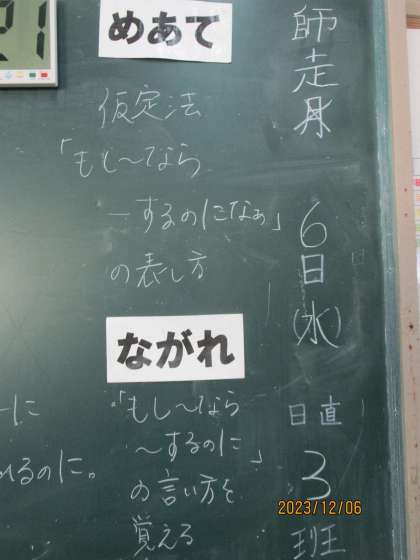 師走月
6日(水)
日直
3
班
めあて
仮定法
「もし〜なら
―するのになぁ」
の表し方
ながれ
・「もし〜なら
〜するのに」
の言い方を
覚える
に
るのに。
21
2023/12/06